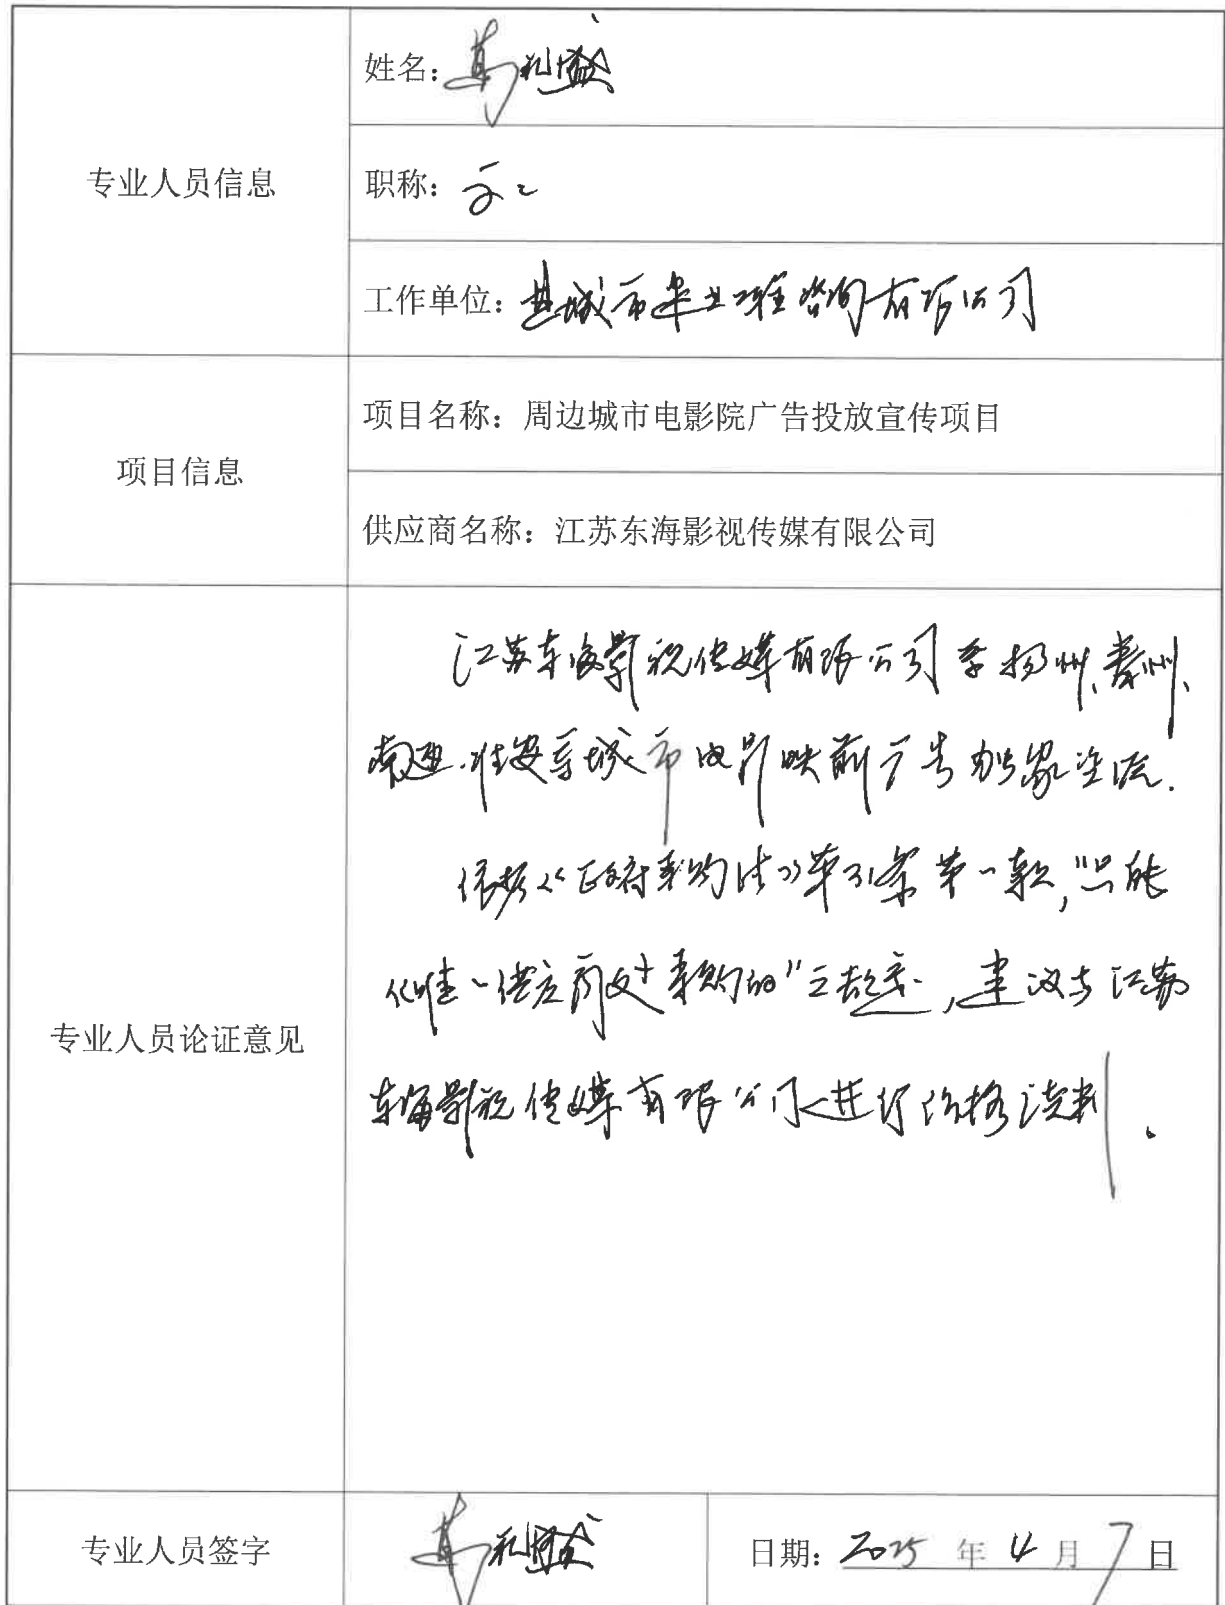 专业人员信息
姓名：
职称：高工
工作单位：盐城市建工工程咨询有限公司
项目信息
项目名称：周边城市电影院广告投放宣传项目
供应商名称：江苏东海影视传媒有限公司
专业人员论证意见
江苏东海影视传媒有限公司系扬州、泰州、
南通、淮安等城市电影映前广告独家资源.
依据《政府采购法》第31条第一款，"只能
从唯一供应商处采购的"之规定，建议与江苏
东海影视传媒有限公司进行价格谈判。
专业人员签字
日期：2025年4月7日